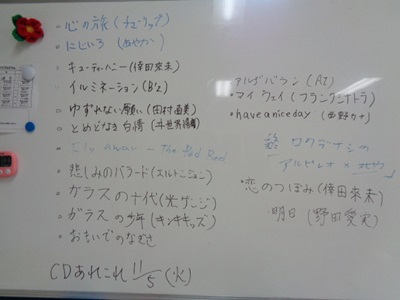 ・心の旅(チューリップ)
・にじいろ(あやかり)
・キューティーハニー(倖田來未)
・イルミネーション(B'z)
・ゆずれない願い(田村直美)
・とめどなき
・
・悲しみのバラード(エルトンジョン)
・ガラスの十代(光ゲンジ)
・ガラスの少年(キンキキッズ)
・おもいでのなぎさ
CDあれこれ 11/5(火)
アルデバラン(AI)
・マイウェイ(フランクシナトラ)
・have a nice day (西野カナ)
ロクデナシの
「アルビレオ×
・恋のつぼみ(倖田來未)
明日(野田愛実)